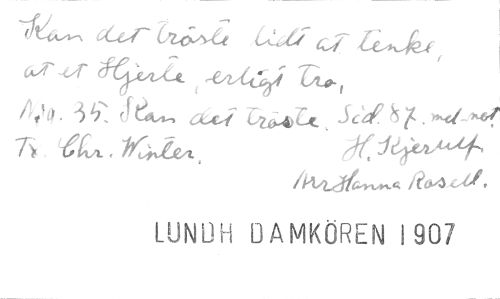 Kan det tröste lidt at tenke,
at et Hjerte, erligt tro,
No. 35. Kan det tröste. Sid. 87. mel-not
Tx. Chr. Winter. H. Kjerulf
Arr Hanna Rosell.
LUNDH DAMKÖREN 1907